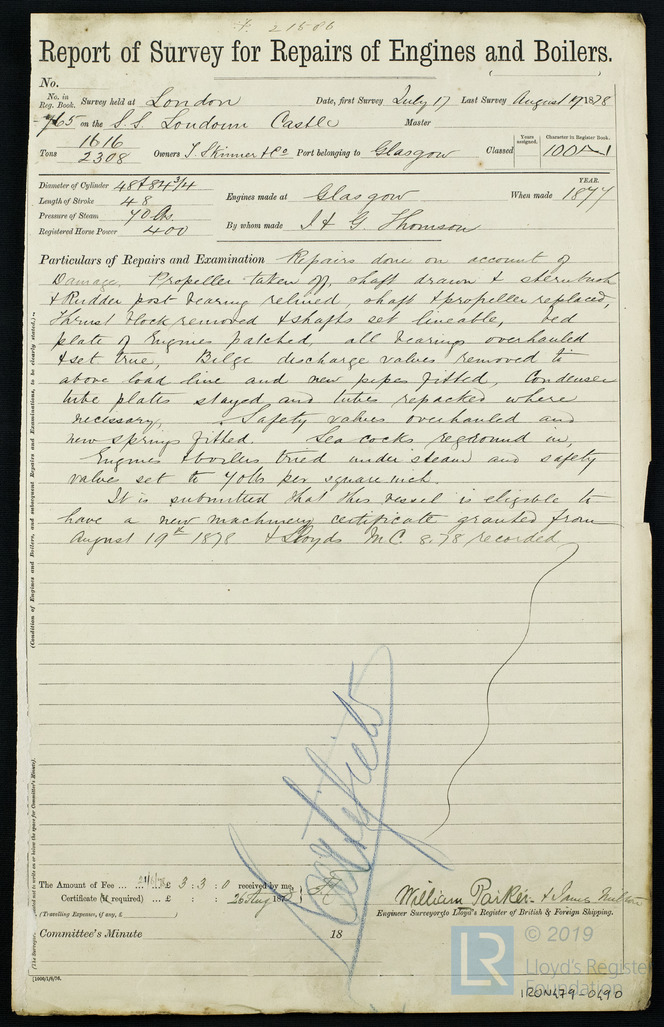 21586
Report of Survey for Repairs of Engines and Boilers.
No.
No. in Reg. Book. Survey held at London Date, first Survey July 17 Last Survey August 19 1878
765 on the S.S. Loudoun Castle Master
Tons 1616 2308 Owners T. Skinner & Co Port belonging to Glasgow Classed Years assigned. Character in Register Book. 100A1
Diameter of Cylinder 48 & 84 3/4
Length of Stroke 48
Pressure of Steam 70 lbs.
Registered Horse Power 400
Engines made at Glasgow When made YEAR. 1877
By whom made J & G. Thomson
Particulars of Repairs and Examination Repairs done on account of
Damage, Propeller taken off, shaft drawn & sternbush
& Rudder post bearing relined, shaft & propeller replaced,
Thrust block removed & shafts set lineable, bed
plate of Engines patched, all bearings overhauled
& set true, Bilge discharge valves removed to
above load line and new pipes fitted, Condenser
tube plates stayed and tubes repacked where
necessary, Safety valves overhauled and
new springs fitted. Sea cocks reground in,
Engines & boilers tried under steam and safety
valves set to 70 lbs per square inch.
It is submitted that this vessel is eligible to
have a new machinery certificate granted from
August 19th 1878 & Lloyds M.C. 8.78 recorded
(Condition of Engines and Boilers, and subsequent Repairs and Examinations, to be clearly stated.)
The Amount of Fee ... £ 3 : 3 : 0 received by me,
Certificate (if required) ... £ : : 26 Aug 1878
(Travelling Expenses, if any, £ )
William Parker & James Milton
Engineer Surveyors to Lloyd's Register of British & Foreign Shipping.
Committee's Minute 18
LR © 2019
Lloyd's Register
Foundation
IRON479-0690